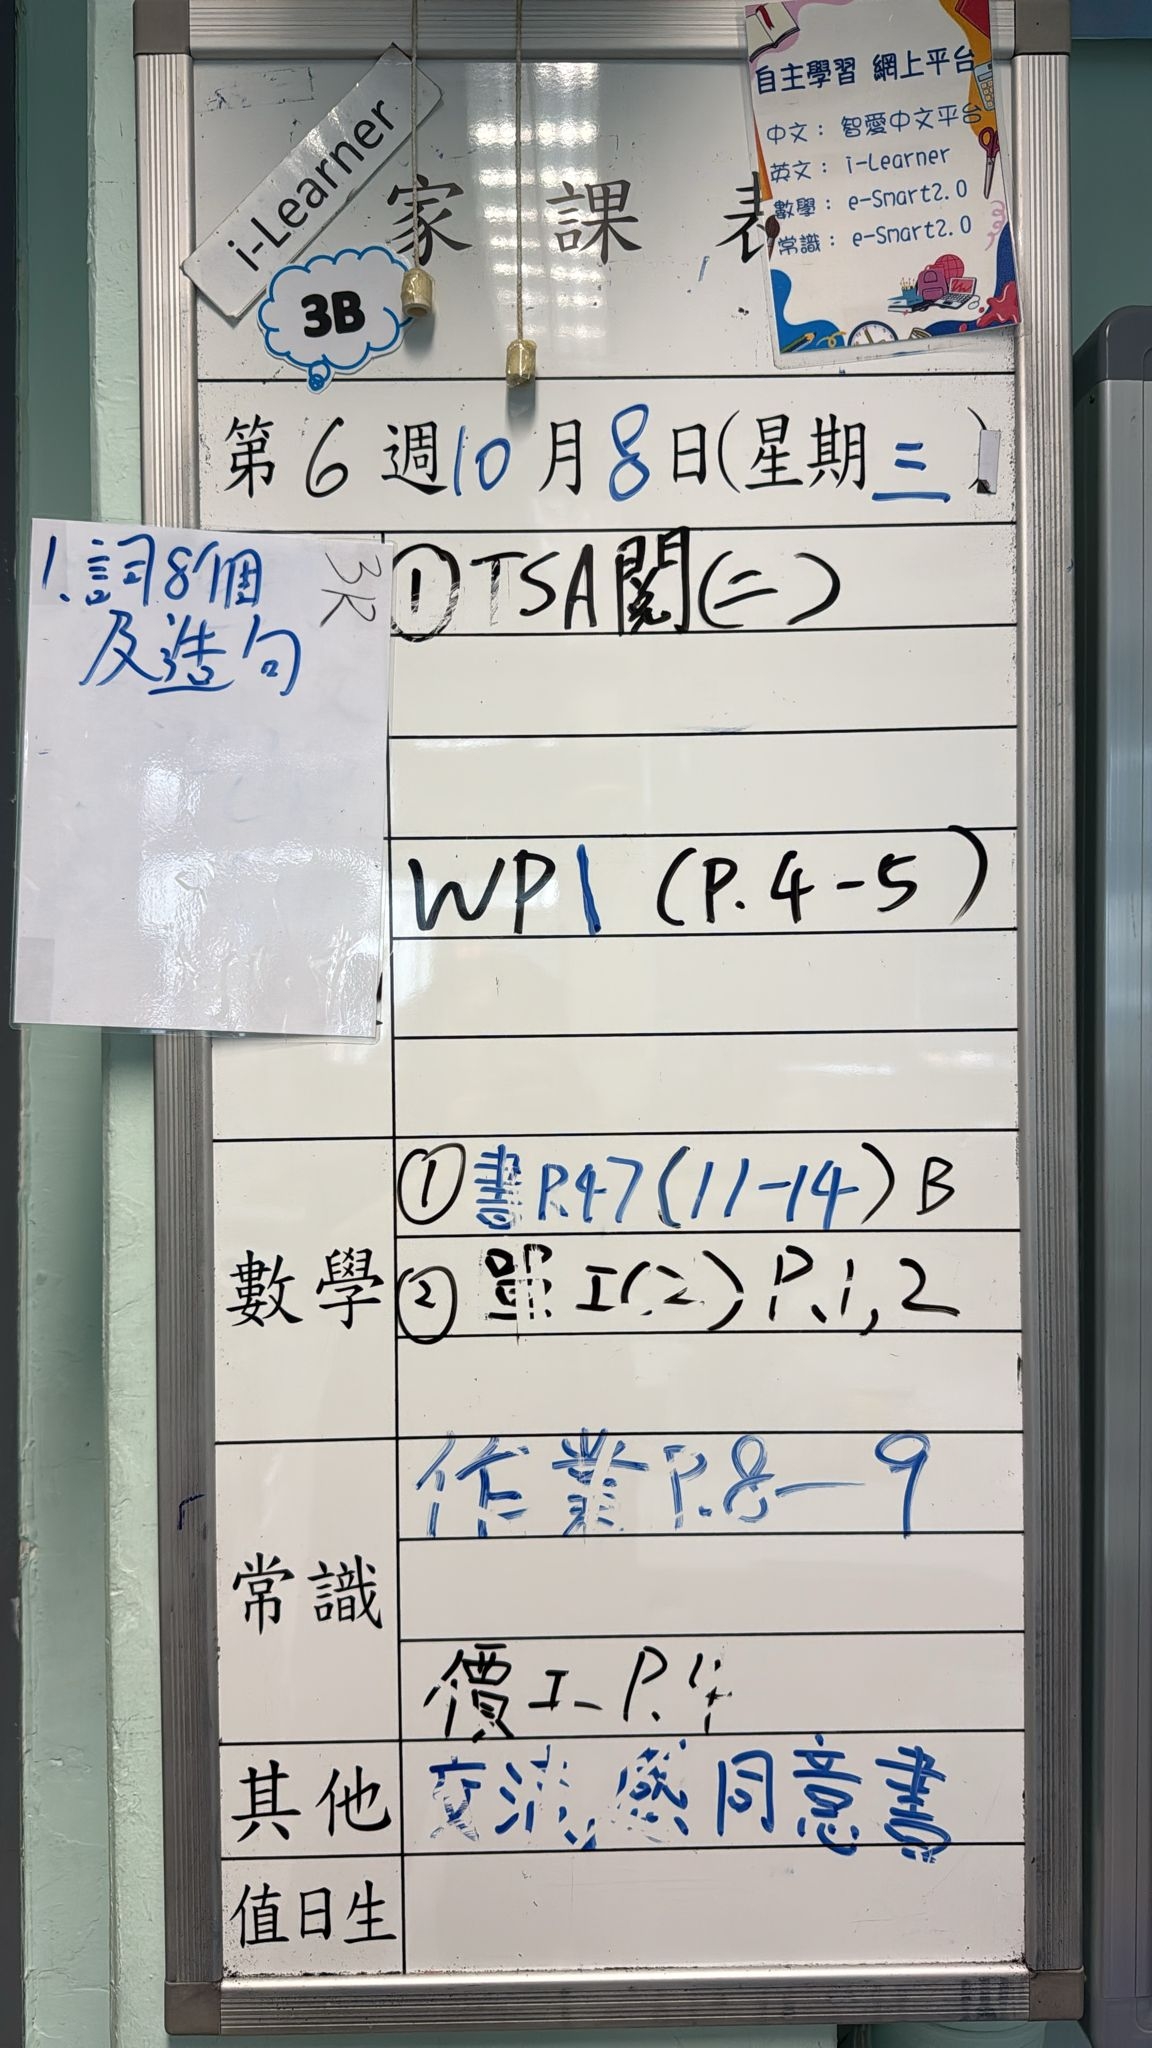 自主學習 網上平台
中文： 智愛中文平台
英文： i-Learner
數學： e-Smart2.0
常識： e-Smart2.0
i-Learner
家 課 表
3B
第 6 週 10 月 8 日(星期三)
1.詞8個
及造句
3R
① TSA閱(二)
WP1 (P.4-5)
數學
① 書P.47(11-14) B
② 單I(2) P.1,2
常識
作業P.8-9
價工 P.4
其他
交流 感 同意書
值日生